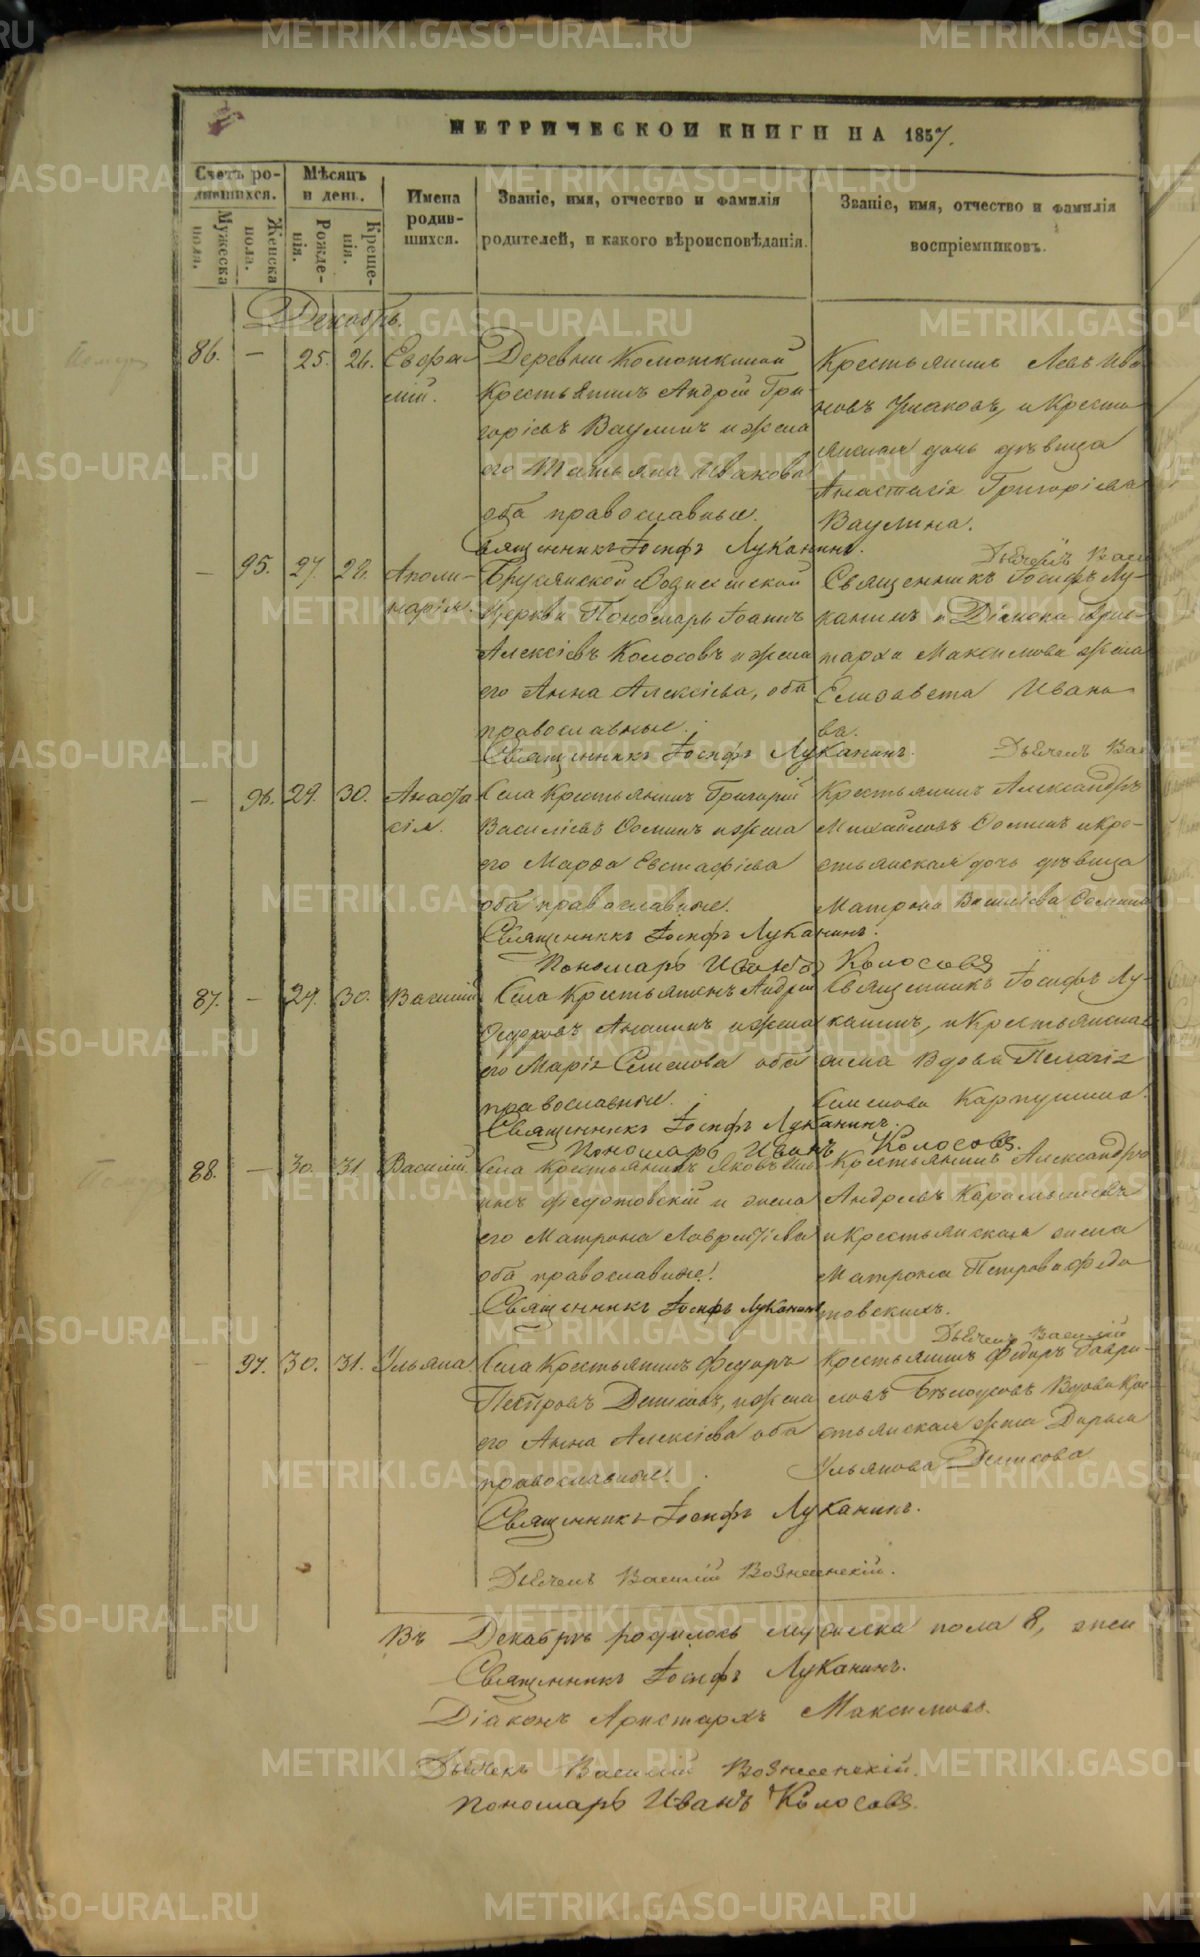 МЕТРИЧЕСКОЙ КНИГИ НА 1857.
Счетъ ро-
дившихся.
Мѣсяцъ
и день.
Имена
родив-
шихся.
Званіе, имя, отчество и фамилія
родителей, и какого вѣроисповѣданія.
Званіе, имя, отчество и фамилія
воспріемниковъ.
Мужеска
пола.
Женска
пола.
Рожде-
нія.
Креще-
нія.
Декабрь.
86. — 25. 26.
Деревни
Крестьянинъ Андрей Гри-
горіевъ Ваулинъ и жена
его Татьяна Иванова
оба православные.
Священникъ Іосифъ Луканинъ.
Крестьянинъ Левъ Ива-
новъ Ушаковъ, и Кресть-
янская дочь дѣвица
Анастасія Григоріева
Ваулина.
Дьячекъ
— 95. 27. 28. Аполи-
нарія.
Бруснянской Вознесенской
Церкви Пономарь Іоаннъ
Алексѣевъ Колосовъ и жена
его Анна Алексѣева, оба
православные.
Священникъ Іосифъ Луканинъ.
Священникъ Іосифъ Лу-
канинъ и Діакона Арис-
тарха Максимова жена
Елизавета Ивано-
ва.
Дьячекъ
— 96. 29. 30. Анаста
сія.
Села Крестьянинъ Григорій
Василіевъ Ооминъ и жена
его Марѳа Евстафіева
оба православные.
Священникъ Іосифъ Луканинъ.
Пономарь Иванъ Колосовъ
Крестьянинъ Александръ
Михайловъ Ооминъ и Кре-
стьянская дочь дѣвица
Матрона Василіева
87. — 29. 30. Василій
Села Крестьянинъ Андрей
Ѳедоровъ Ананьинъ и жена
его Марія Семенова оба
православные.
Священникъ Іосифъ Луканинъ.
Пономарь Иванъ Колосовъ.
Священникъ Іосифъ Лу-
канинъ, и Крестьянская
жена Вдова Пелагія
Семенова Карпушина.
88. — 30. 31. Василій.
Села Крестьянинъ Яковъ
Федотовскій и жена
его Матрона Лаврентіева
оба православные.
Священникъ Іосифъ Луканинъ
Крестьянинъ Александръ
Андреевъ Карамышевъ
и Крестьянская жена
Матрона Петрова Федо
товскихъ.
Дьячекъ Василій
— 97. 30. 31. Ульяна.
Села Крестьянинъ Федоръ
Петровъ Денисовъ, и жена
его Анна Алексѣева оба
православные.
Священникъ Іосифъ Луканинъ.
Дьячекъ Василій Вознесенскій.
Крестьянинъ Федоръ Гаври-
ловъ Бѣлоусовъ Вдова Кре-
стьянская жена Дарья
Ульянова Денисова
Въ Декабрѣ родилось мужеска пола 8, жен
Священникъ Іосифъ Луканинъ.
Діаконъ Аристархъ Максимовъ.
Дьячекъ Василій Вознесенскій.
Пономарь Иванъ Колосовъ.
METRIKI.GASO-URAL.RU